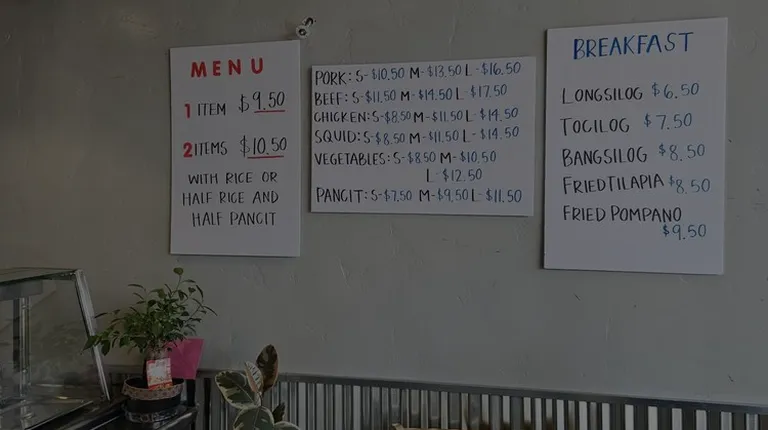 MENU
1 ITEM $9.50
2 ITEMS $10.50
WITH RICE OR
HALF RICE AND
HALF PANCIT
PORK: S-$10.50 M-$13.50 L-$16.50
BEEF: S-$11.50 M-$14.50 L-$17.50
CHICKEN: S-$8.50 M-$11.50 L-$14.50
SQUID: S-$8.50 M-$11.50 L-$14.50
VEGETABLES: S-$8.50 M-$10.50
L-$12.50
PANCIT: S-$7.50 M-$9.50 L-$11.50
BREAKFAST
LONGSILOG $6.50
TOCILOG $7.50
BANGSILOG $8.50
FRIED TILAPIA $8.50
FRIED POMPANO
$9.50